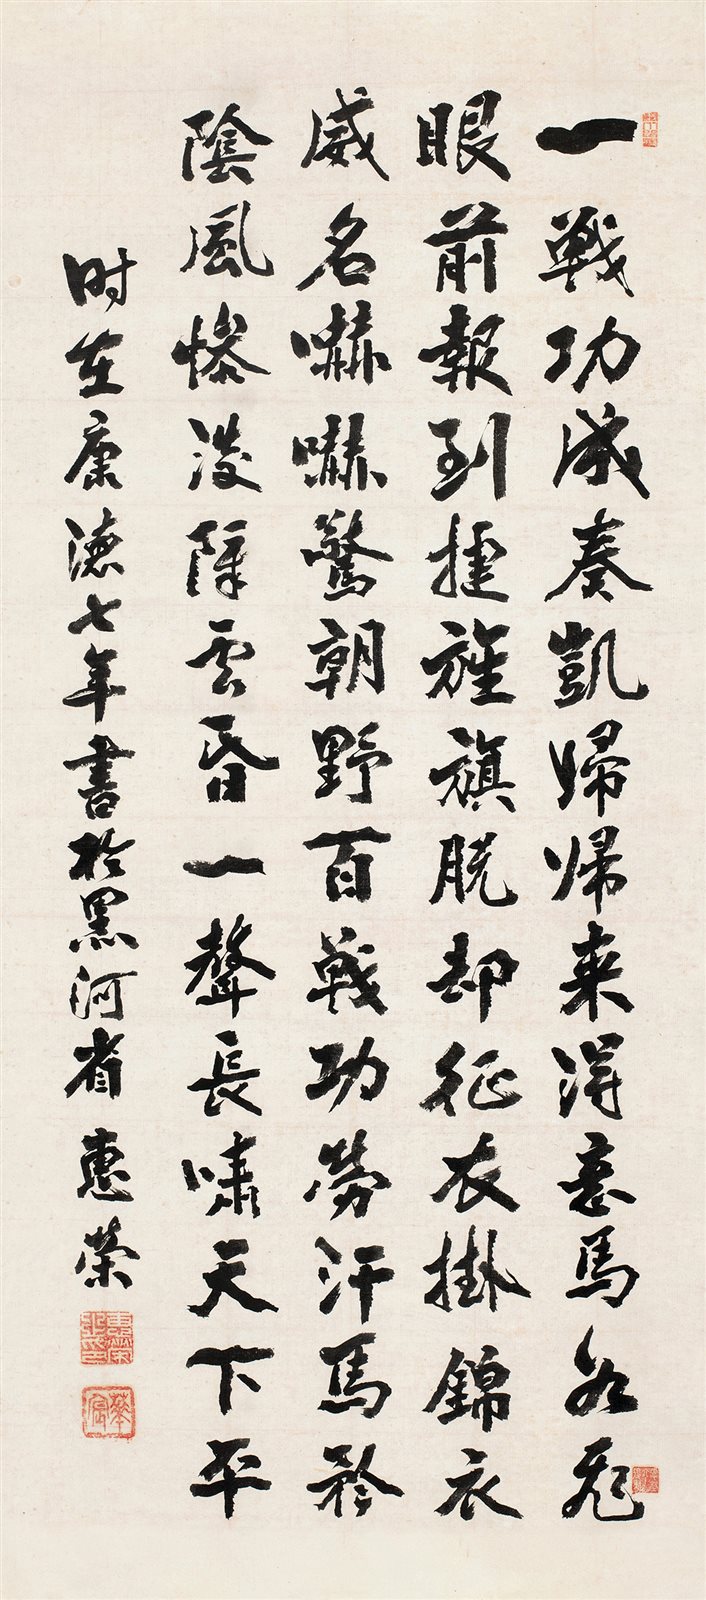 一戰功成奏凱歸歸来得意馬如飛
眼前報到捷旌旗脱却征衣掛錦衣
威名嚇嚇驚朝野百戰功勞汗馬矜
陰風慘淡陣雲昏一聲長嘯天下平
时在康德七年書於黑河省惠榮
惠榮之印